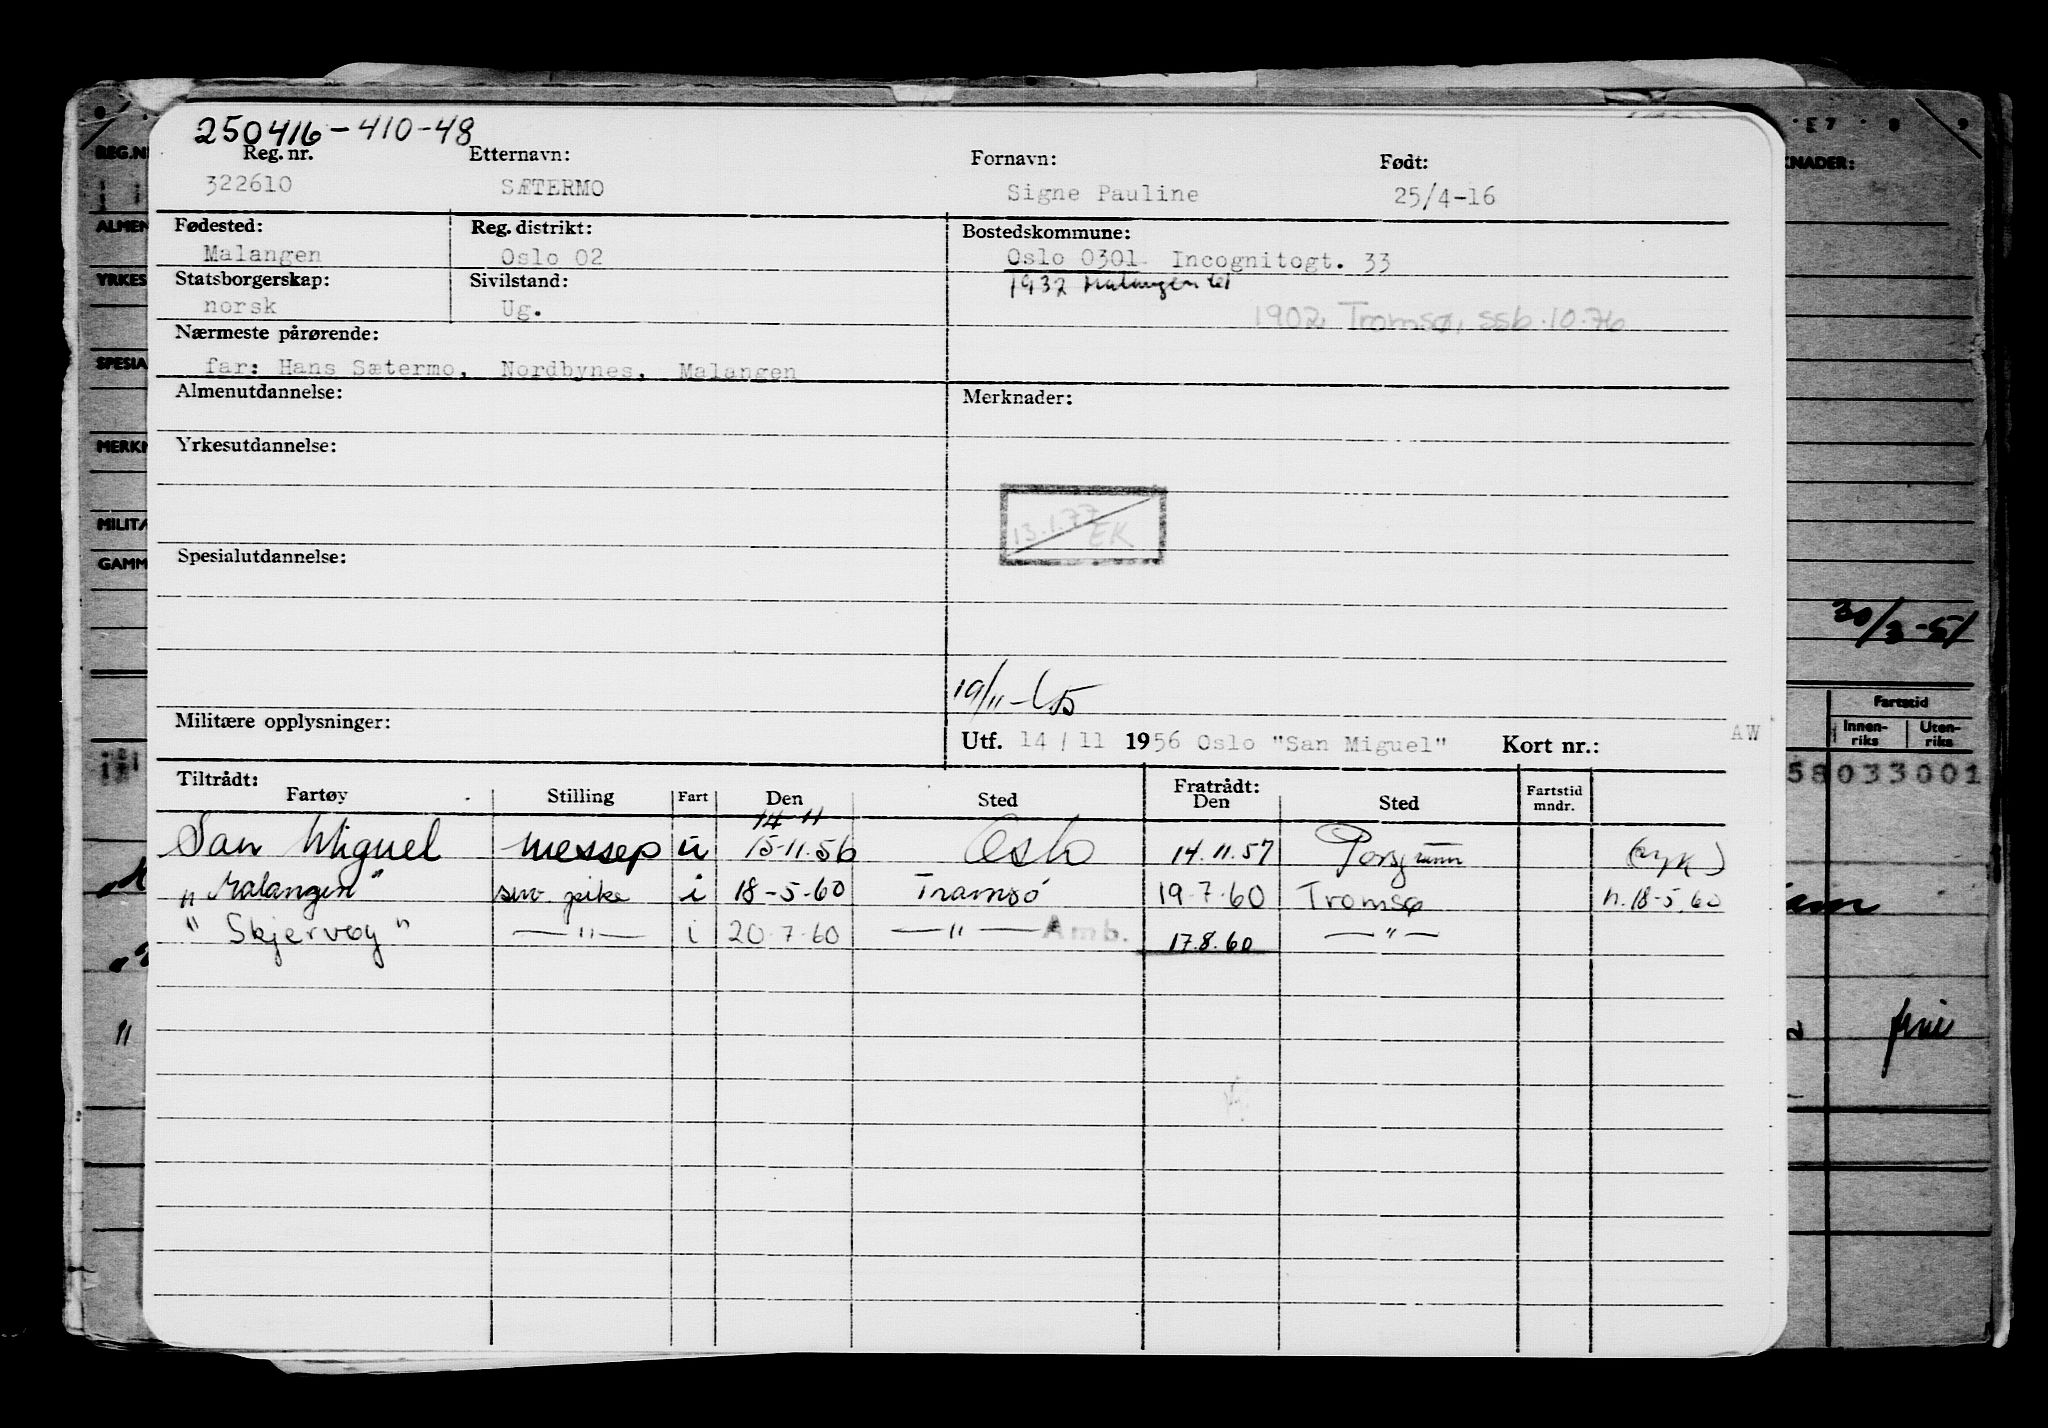 250416-410-48
Reg. nr. Etternavn: Fornavn: Født:
322610 SÆTERMO Signe Pauline 25/4-16
Fødested: Reg. distrikt: Bostedskommune:
Malangen Oslo 02 Oslo 0301 Incognitogt. 33
Statsborgerskap: Sivilstand: 1937 Malangen
norsk Ug. 1902 Tromsø, ssb.10.76
Nærmeste pårørende:
far: Hans Sætermo, Nordbynes, Malangen
Almenutdannelse: Merknader:
Yrkesutdannelse:
13.1.77 EK
Spesialutdannelse:
19/11-65
Militære opplysninger:
Utf. 14/11 1956 Oslo "San Miguel" Kort nr.: AW
Tiltrådt: Fratrådt:
Fartøy Stilling Fart Den Sted Den Sted Fartstid mndr.
14 11
San Miguel messep u 15-11.56 Oslo 14.11.57 Porsgrunn (syk)
"Malangen" serv. pike i 18-5-60 Tromsö 19.7.60 Tromsø n.18-5.60
"Skjervøy" —"— i 20.7.60 —"— Amb. 17.8.60 —"—
REG.N
ALMEN
YRKES
SPESIA
MERKN
MILITÆ
GAMM
E7 8 9
KNADER:
30/3-51
Fartstid
Innen-
riks
Uten-
riks
58033001